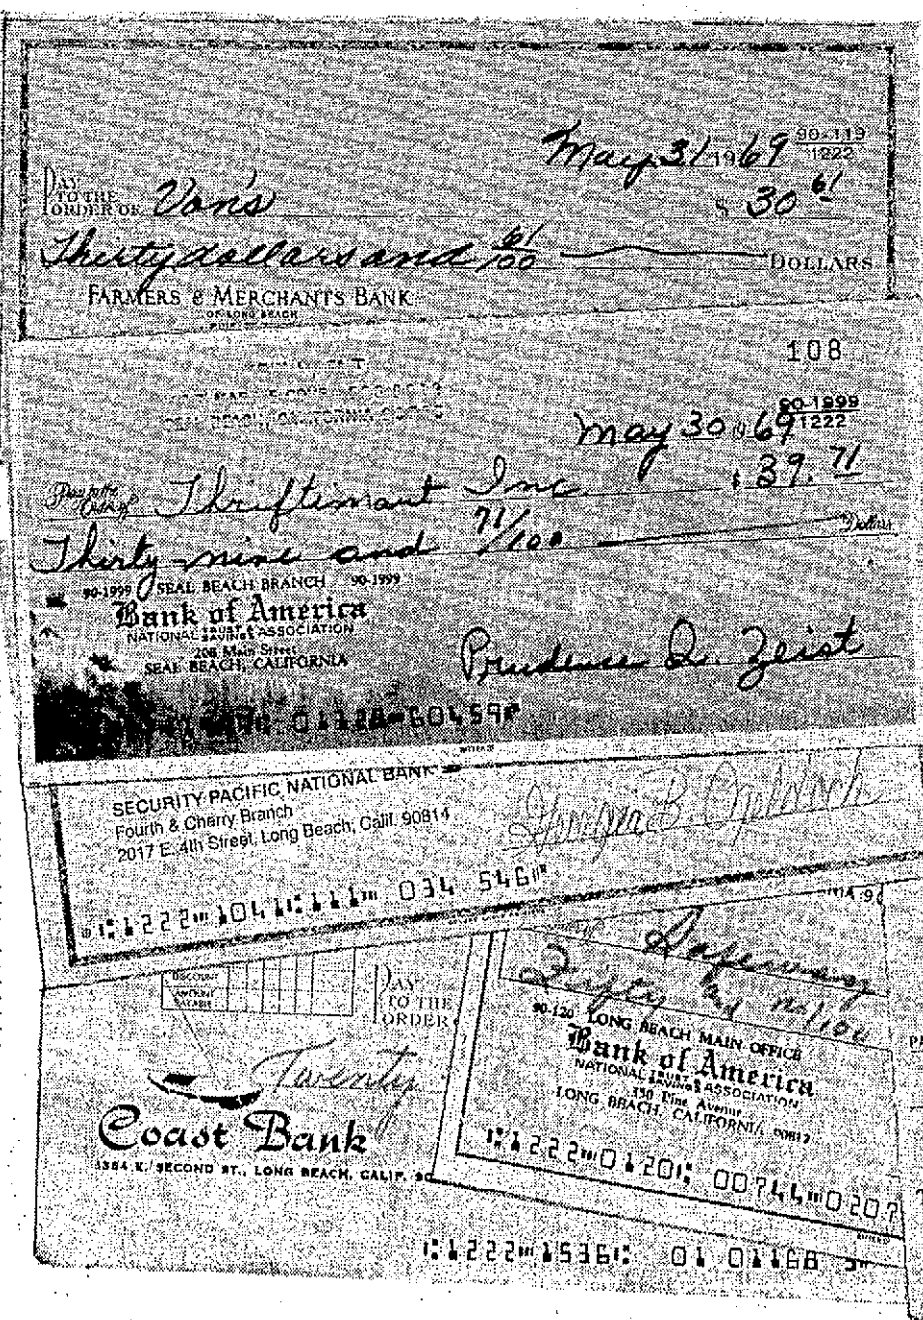 May 31 1969 90-119
1222
PAY
TO THE
ORDER OF Von's $ 30 61
Thirty dollars and 61/100 DOLLARS
FARMERS & MERCHANTS BANK
OF LONG BEACH
108
SEAL BEACH, CALIFORNIA
May 30 1969 90-1999
1222
Pay to the
Order of Thriftimart Inc. $ 39.71
Thirty-nine and 71/100 Dollars
90-1999 SEAL BEACH BRANCH 90-1999
Bank of America
NATIONAL TRUST AND SAVINGS ASSOCIATION
208 Main Street
SEAL BEACH, CALIFORNIA
Prudence Q. Zeist
01128 60459
SECURITY PACIFIC NATIONAL BANK
Fourth & Cherry Branch
2017 E. 4th Street, Long Beach, Calif. 90814
B.
1222 1041 111 034 546
DISCOUNT
AMOUNT
PAY
TO THE
ORDER
Twenty
Coast Bank
SECOND ST., LONG BEACH, CALIF.
Safeway
and no/100
90-120 LONG BEACH MAIN OFFICE
Bank of America
NATIONAL TRUST AND SAVINGS ASSOCIATION
350 Pine Avenue
LONG BEACH, CALIFORNIA 90812
1222 0120 00744 0207
1222 1536 01 01168